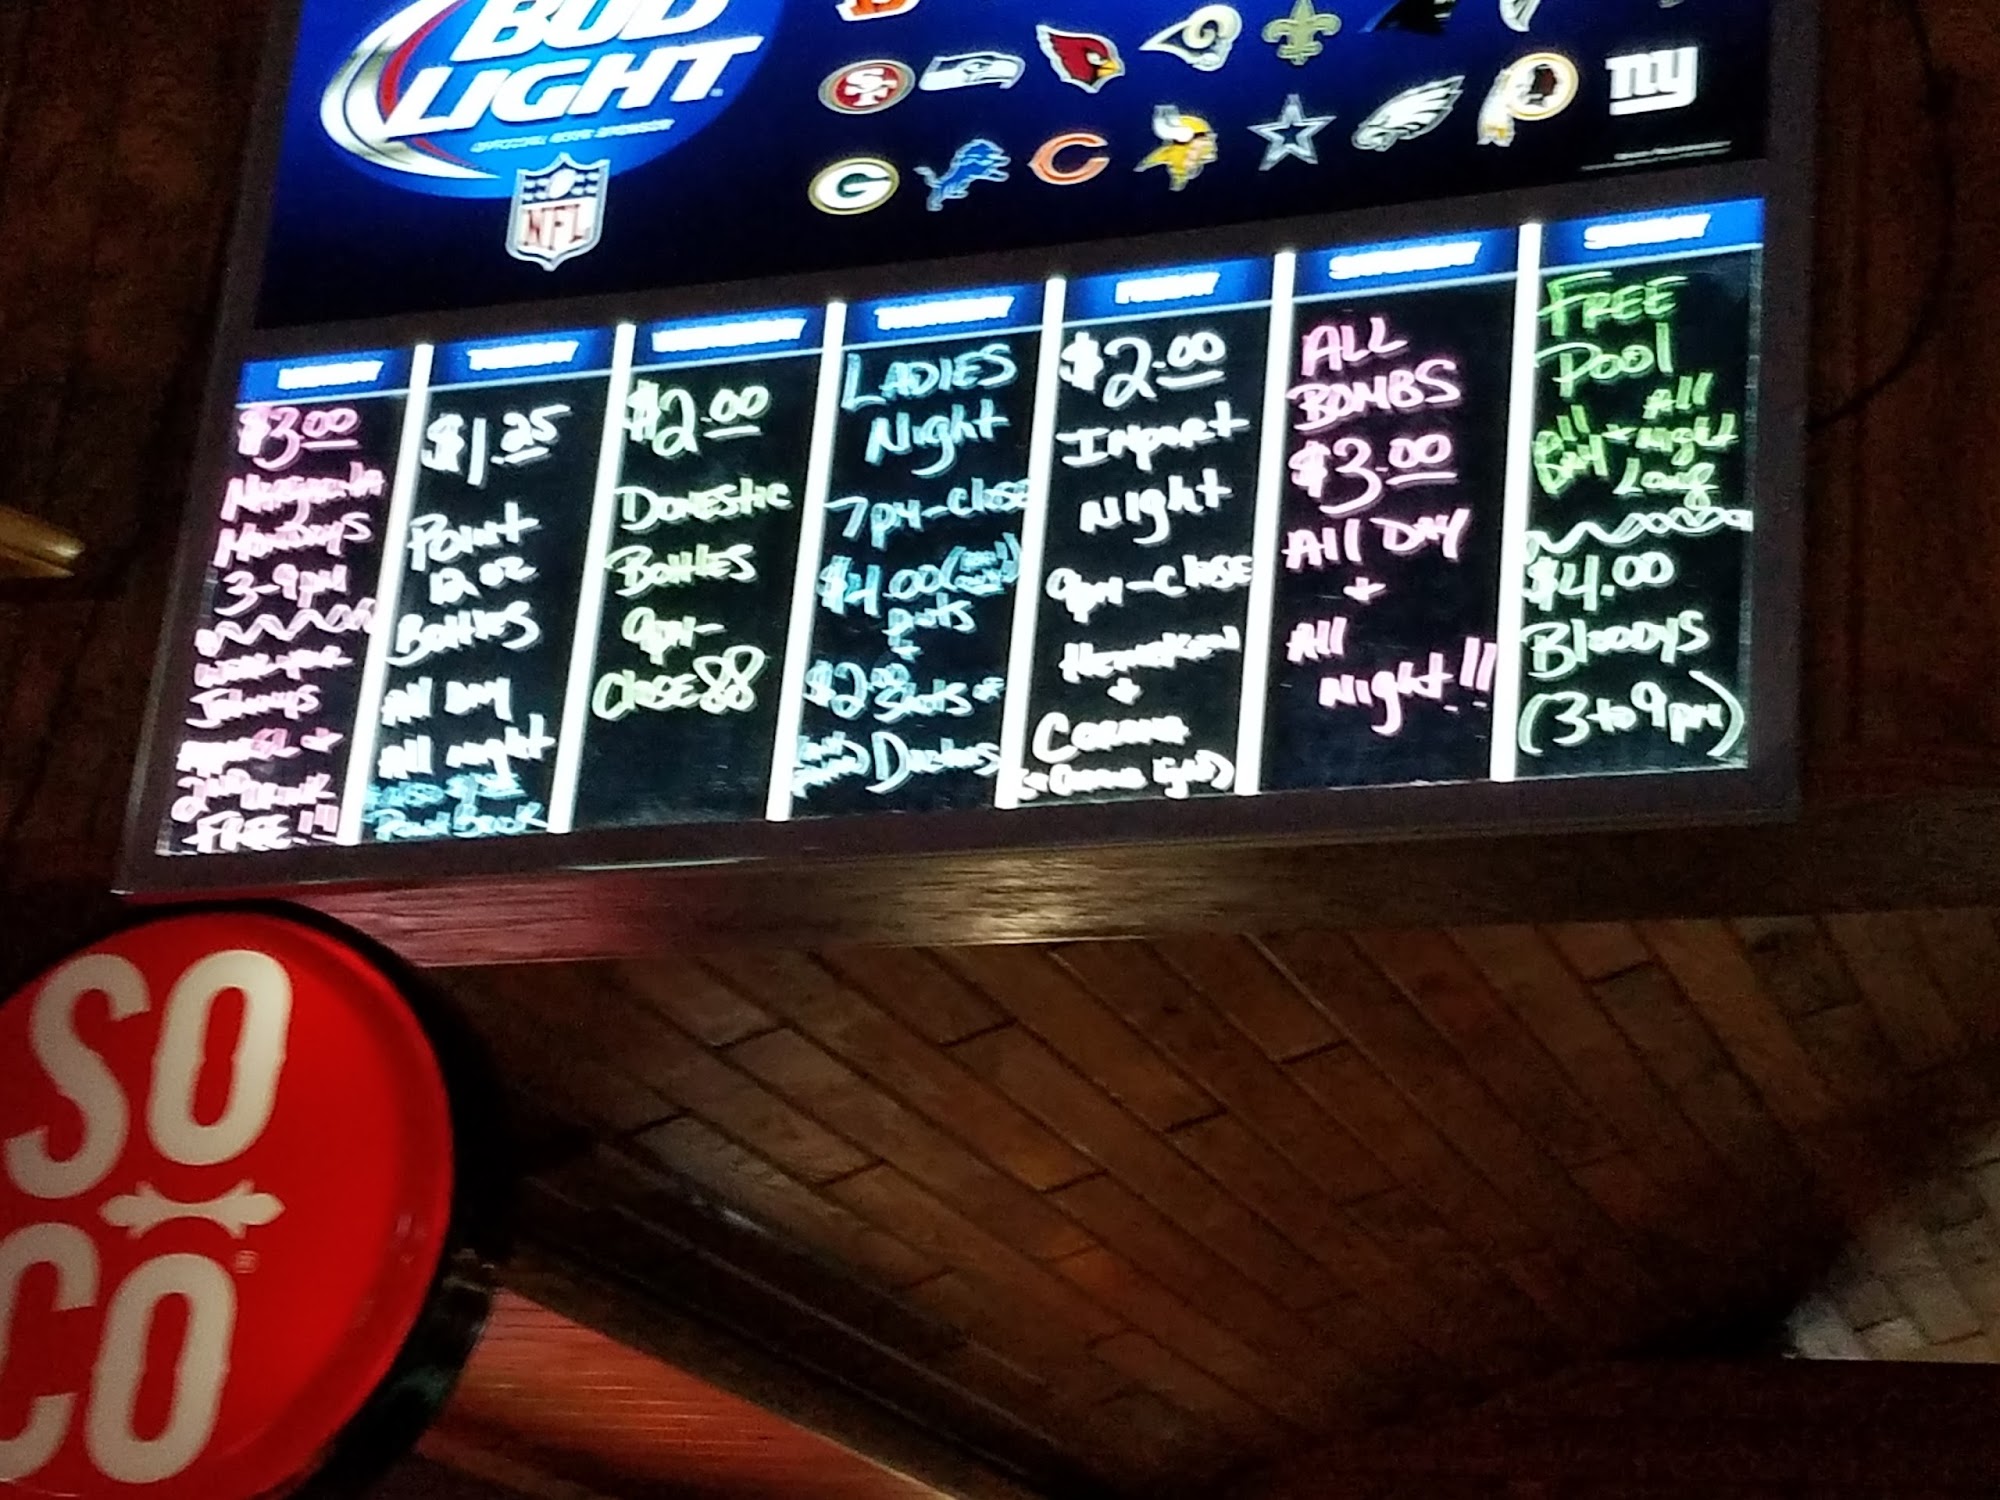 BUD
LIGHT
OFFICIAL BEER SPONSOR
NFL
SF
C
ny
G
MONDAY
$3.00
Margarita
Mondays
3-9pm
FREE
TUESDAY
$1.25
Point
12 oz
Bottles
All Day
All Night
WEDNESDAY
$2.00
DOMESTIC
Bottles
9pm-
Close
THURSDAY
LADIES
Night
7pm-close
$4.00
+
$2
FRIDAY
$2.00
Import
Night
9pm-Close
Heineken
+
Corona
SATURDAY
ALL
BOMBS
$3.00
All DAY
+
All
Night!!!
SUNDAY
FREE
Pool
All
Day + Night
Long
$4.00
Bloodys
(3 to 9pm)
SO
CO